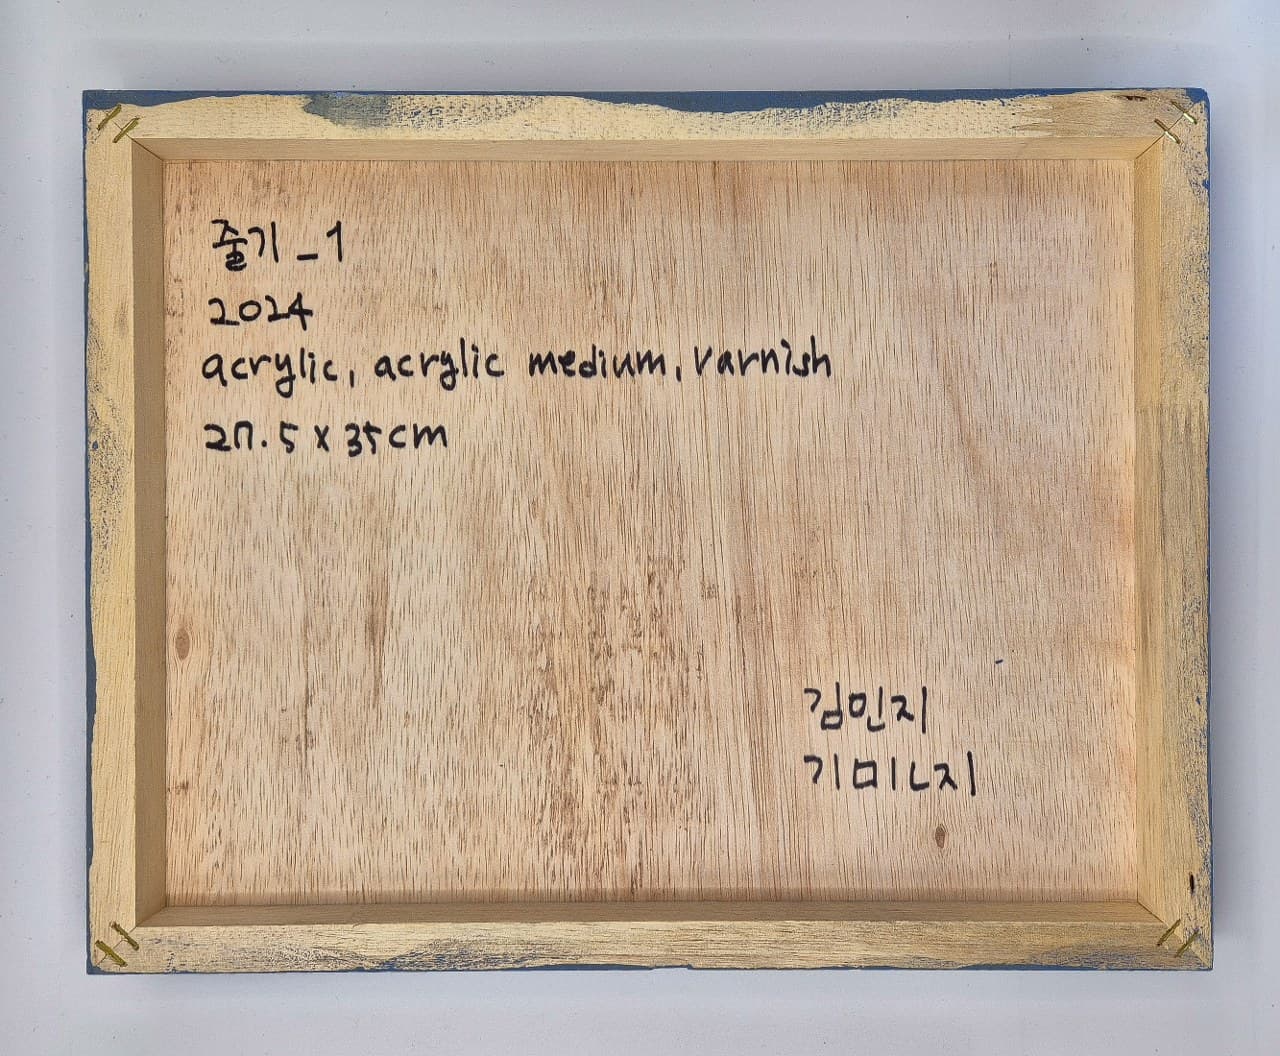 줄기_1
2024
acrylic, acrylic medium, varnish
27.5 x 35cm
김민지
기미ㄴ지